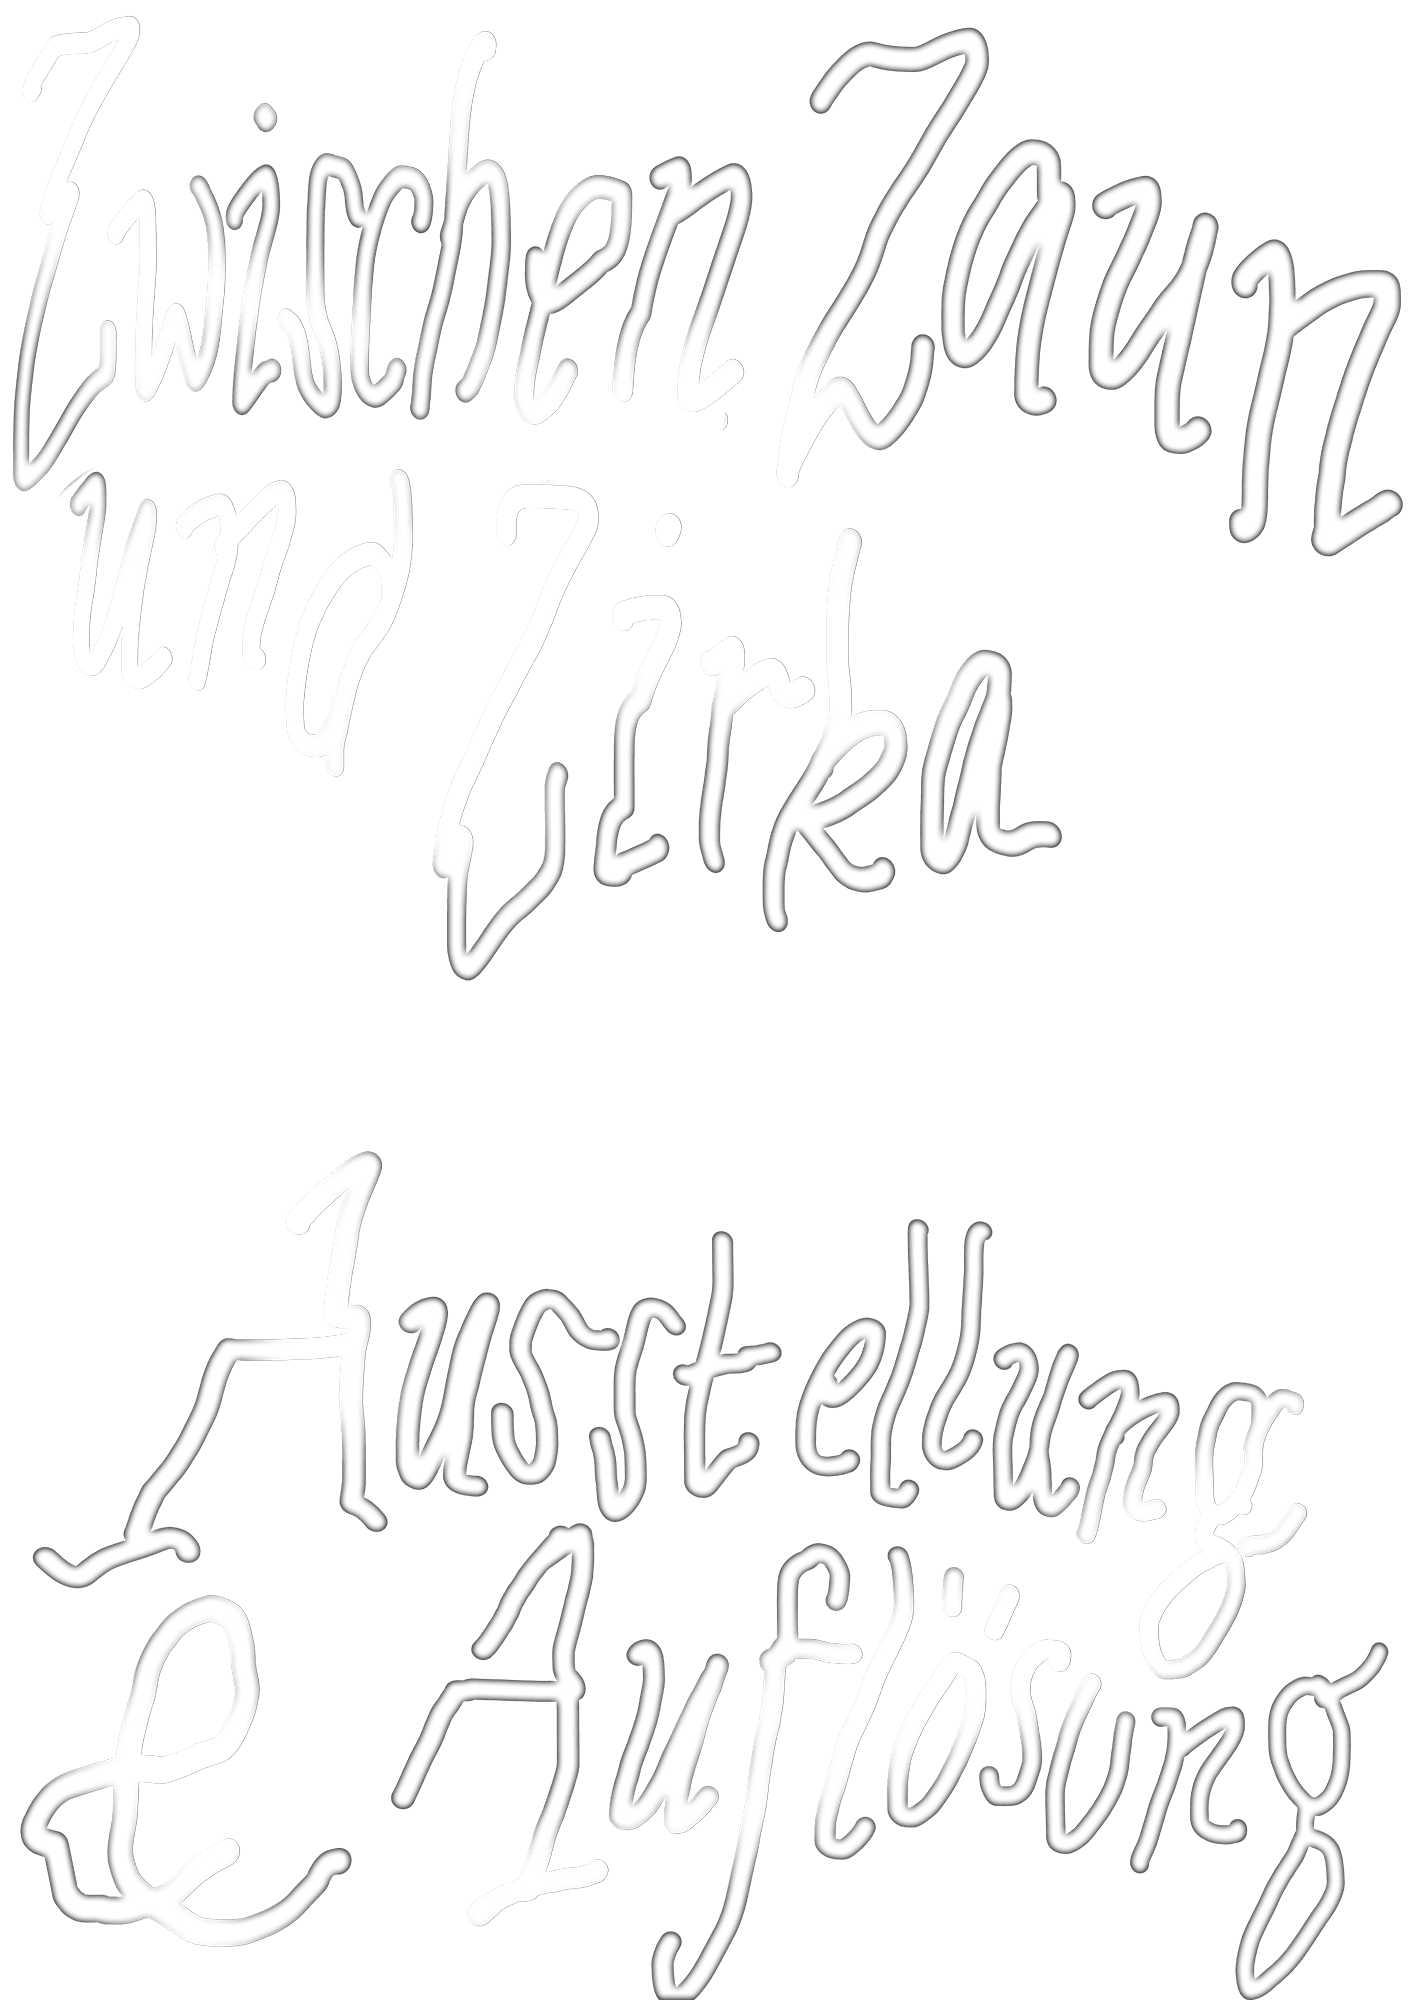 Zwischen Zaun
und Zirka
Ausstellung
& Auflösung